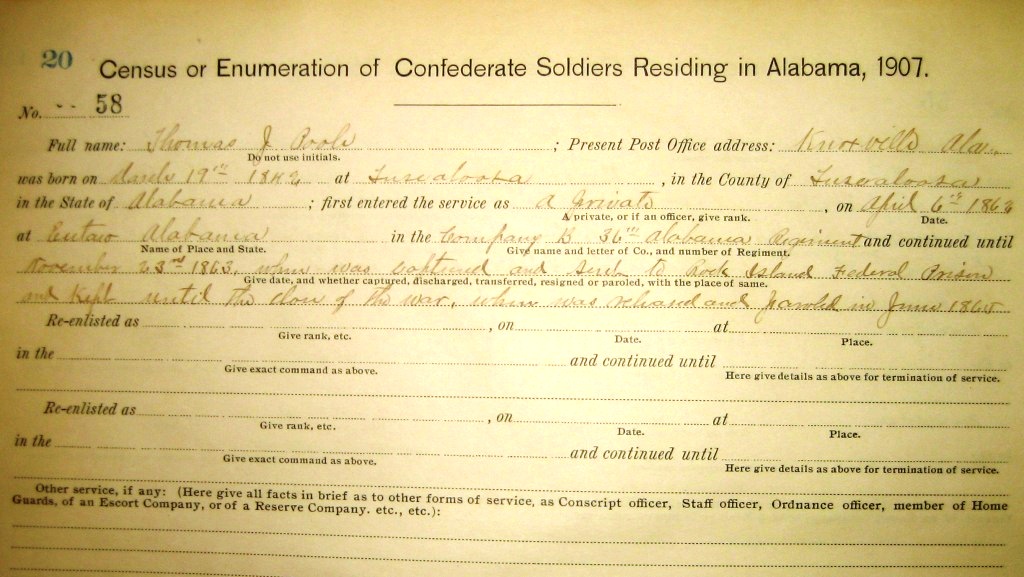 20
Census or Enumeration of Confederate Soldiers Residing in Alabama, 1907.
No. 58
Full name: Thomas J Poole ; Present Post Office address: Knoxville Ala.
Do not use initials.
was born on March 19th 1842 at Tuscaloosa , in the County of Tuscaloosa
in the State of Alabama ; first entered the service as a Private , on April 6th
A private, or if an officer, give rank. Date.
at Eutaw Alabama in the Company B 36th Alabama Regiment and continued until
Name of Place and State. Give name and letter of Co., and number of Regiment.
November 23rd 1863, when was captured and sent to Rock Island Federal Prison
Give date, and whether captured, discharged, transferred, resigned or paroled, with the place of same.
and Kept until the close of the war, when was released and paroled in June 1865
Re-enlisted as , on at
Give rank, etc. Date. Place.
in the and continued until
Give exact command as above. Here give details as above for termination of service.
Re-enlisted as , on at
Give rank, etc. Date. Place.
in the and continued until
Give exact command as above. Here give details as above for termination of service.
Other service, if any: (Here give all facts in brief as to other forms of service, as Conscript officer, Staff officer, Ordnance officer, member of Home
Guards, of an Escort Company, or of a Reserve Company. etc., etc.):